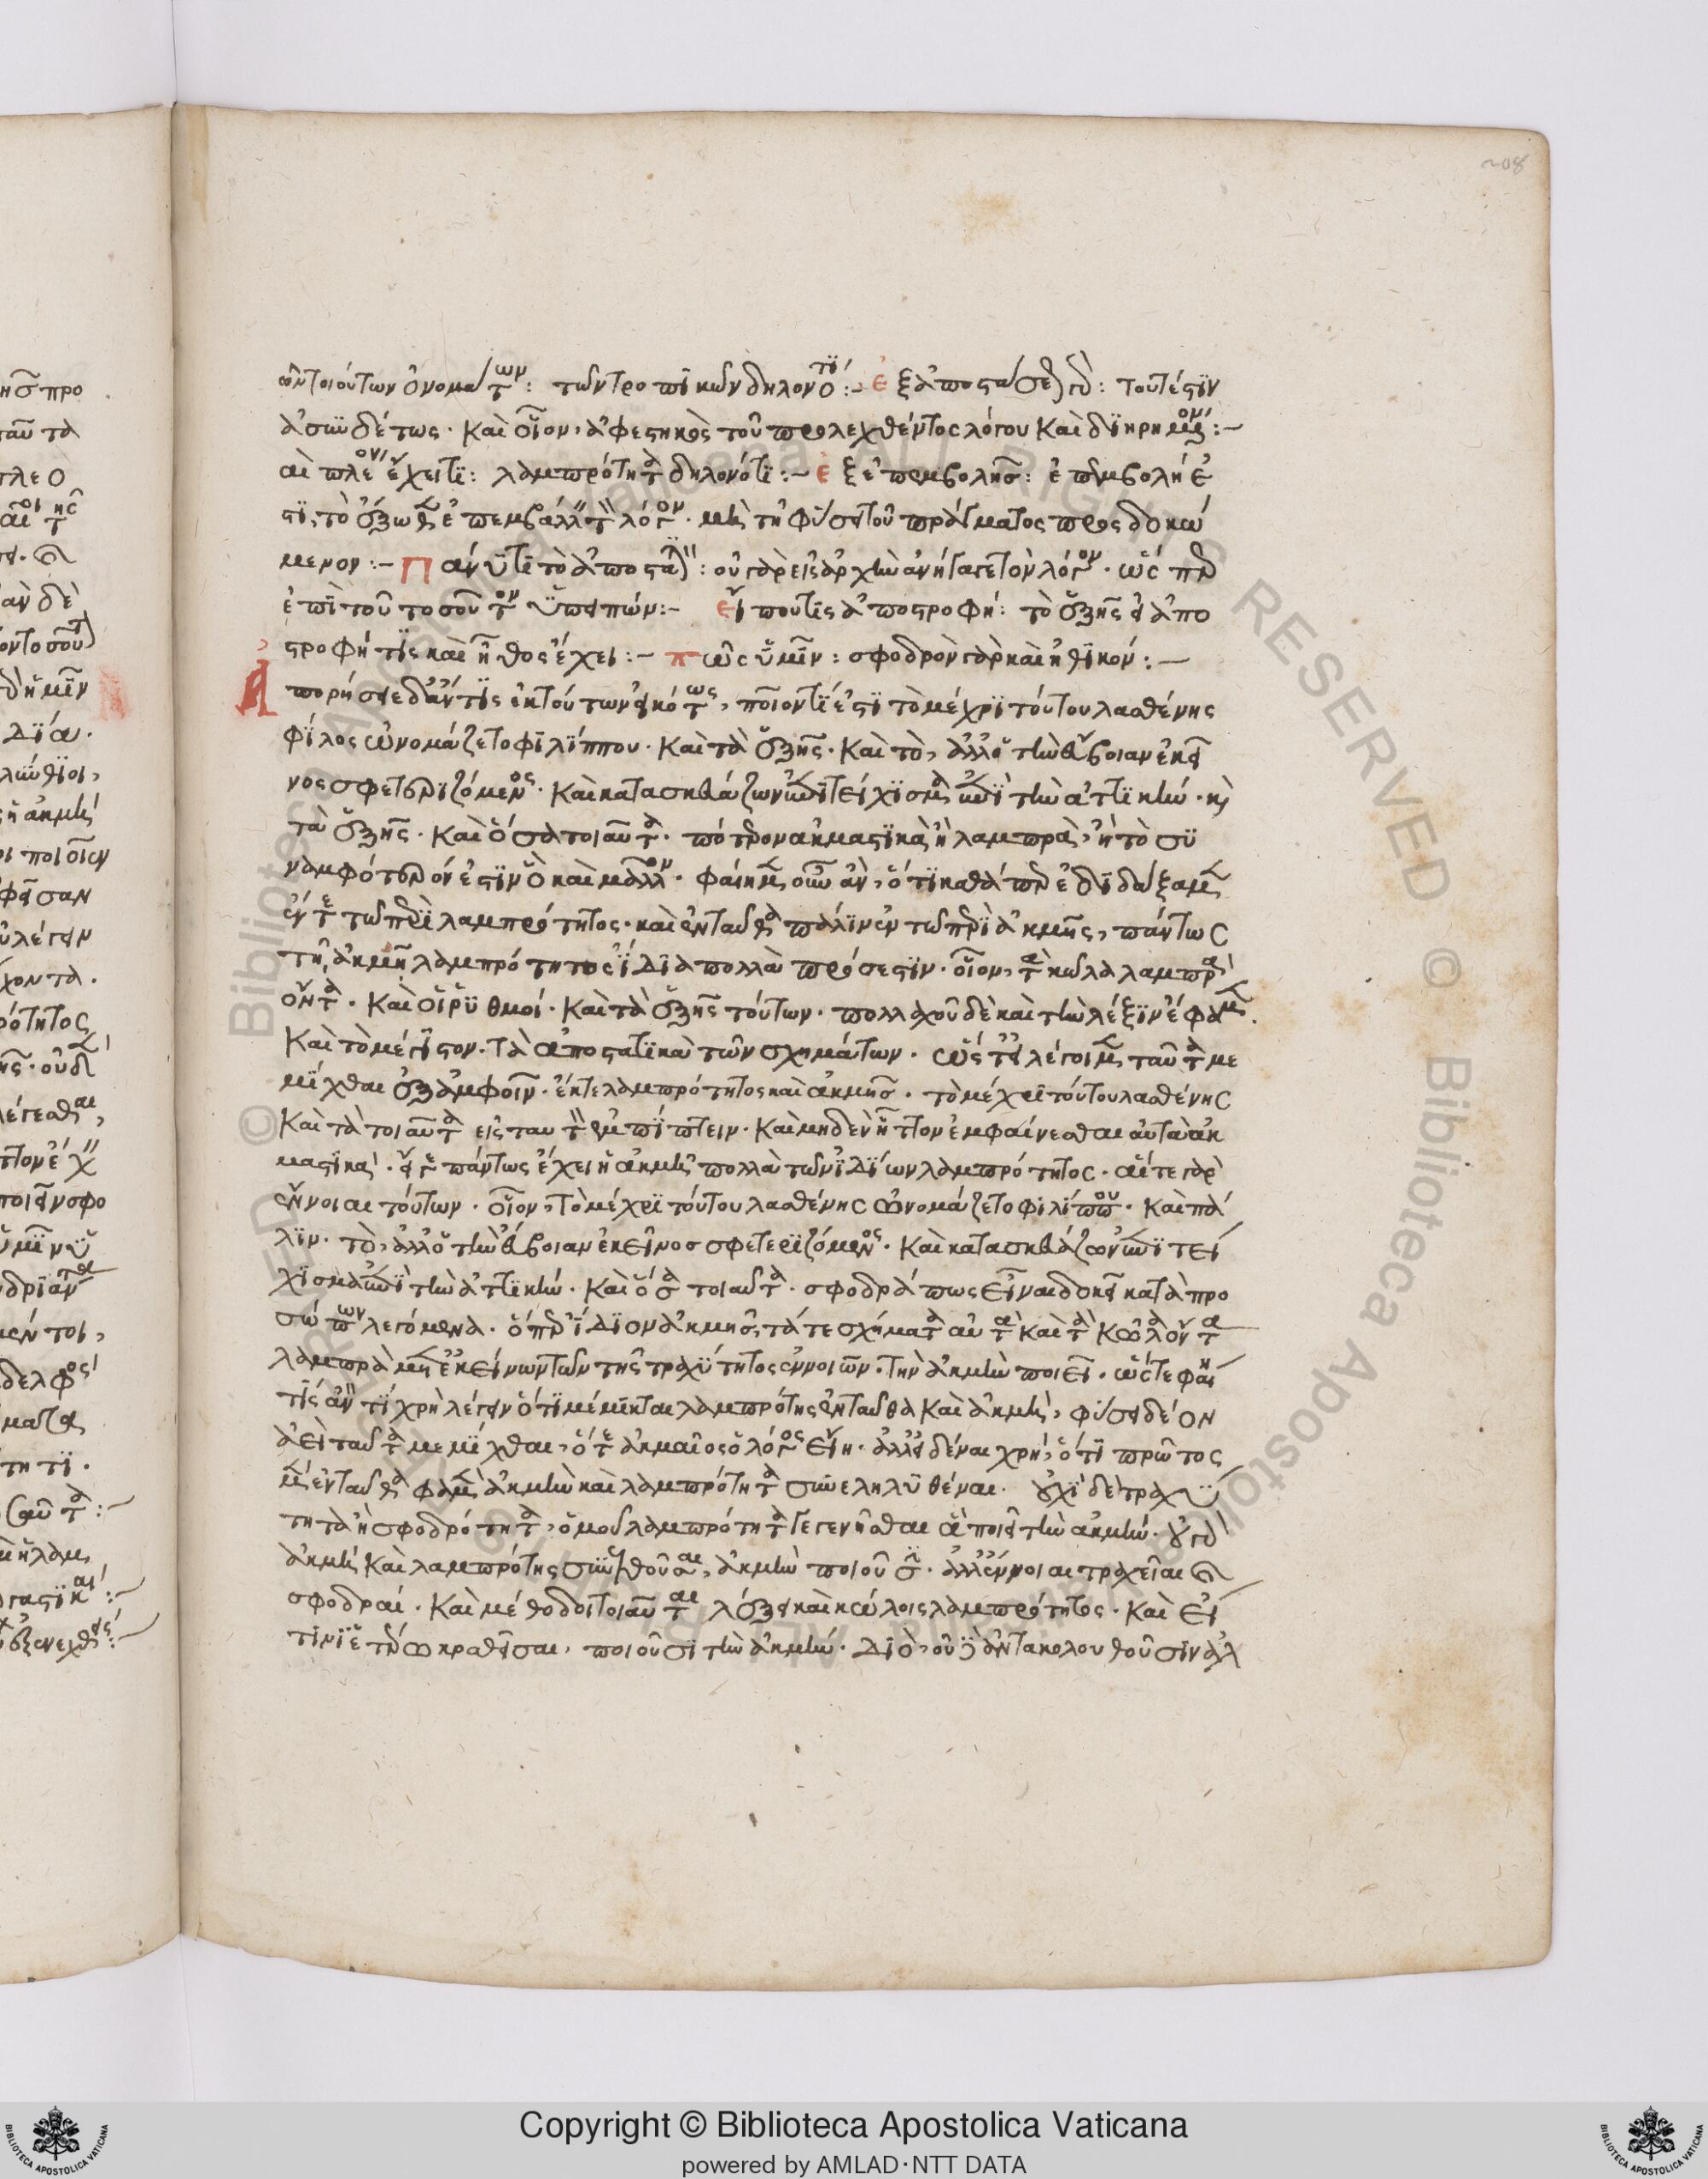 208
τῶν τοιούτων ὀνομάτων: τῶν τροπικῶν δηλονότι:- ἐξ ἀποστάσεως γὰρ: τουτέστιν
ἀσυνδέτως. καὶ οἷον, ἀφεστηκὸς τοῦ προλεχθέντος λόγου καὶ διηρημένον:-
αἳ πλέον ἔχει τι: λαμπρότητα δηλονότι:- ἐξ ἐπεμβολῆς: ἐπεμβολή ἐ
στι, τὸ ἔξωθεν ἐπεμβάλλεσθαι λόγον. μὴ τῇ φύσει τοῦ πράγματος προσδοκώ
μενον:- Πάνυ τι τὸ ἀποστα: οὐ γὰρ εἰς ἀρχὴν ἀνήγαγε τὸν λόγον. ὥσπερ
ἐπὶ τοῦ τοσοῦτον ὑπειπών:- εἴπου τις ἀποστροφή: τὸ ἑξῆς εἰ ἀπο
στροφή τις καὶ ἦθος ἔχει:- πῶς ὑμῖν: σφοδρὸν γὰρ καὶ ἠθικόν:-
Ἀπορήσειε δ' ἄν τις ἐκ τούτων εἰκότως, ποῖόν τί ἐστι τὸ μέχρι τούτου λασθένης
φίλος ὠνομάζετο φιλίππου. καὶ τὰ ἑξῆς. καὶ τὸ, ἀλλ' ὁ τὴν εὔβοιαν ἐκεῖ
νος σφετεριζόμενος. καὶ κατασκευάζων ἐπιτείχισμα ἐπὶ τὴν ἀττικήν. καὶ
τὰ ἑξῆς. καὶ ὅσα τοιαῦτα. πότερον ἀκμαστικὰ ἢ λαμπρὰ, ἢ τὸ συ
ναμφότερόν ἐστιν ὃ καὶ μᾶλλον. φαίημεν οὖν ἂν, ὅτι καθάπερ ἐδιδάξαμεν
ἔν τε τῶ περὶ λαμπρότητος. καὶ ἐνταῦθα πάλιν ἐν τῶ περὶ ἀκμῆς, πάντως
τῇ ἀκμῇ λαμπρότητος ἴδια πολλὰ πρόσεστιν. οἷον, τὰ κῶλα λαμπρὰ
ὄντα. καὶ οἱ ῥυθμοί. καὶ τὰ ἑξῆς τούτων. πολλαχοῦ δὲ καὶ τὴν λέξιν ἔφαμεν.
καὶ τὸ μέγιστον. τὰ ἀποστατικὰ τῶν σχημάτων. ὥστ' εἰ λέγοιμεν ταῦτα με
μίχθαι ἐξ ἀμφοῖν. ἔκ τε λαμπρότητος καὶ ἀκμῆς. τὸ μέχρι τούτου λασθένης
καὶ τὰ τοιαῦτα εἰς ταυτὸν ἐμπίπτειν. καὶ μηδὲν ἧττον ἐμφαίνεσθαι αὐτὰ ἀκ
μαστικά. εἴ γε πάντως ἔχει ἡ ἀκμὴ πολλὰ τῶν ἰδίων λαμπρότητος. αἵ τε γὰρ
ἔννοιαι τούτων. οἷον, τὸ μέχρι τούτου λασθένης ὠνομάζετο φιλίππου. καὶ πά
λιν. τὸ, ἀλλ' ὁ τὴν εὔβοιαν ἐκεῖνος σφετεριζόμενος. καὶ κατασκευάζων ἐπιτεί
χισμα ἐπὶ τὴν ἀττικήν. καὶ ὅσα τοιαῦτα. σφοδρά πως εἶναι δοκεῖ κατὰ προ
σώπων λεγόμενα. ὅπερ ἴδιον ἀκμῆς, τά τε σχήματα αὐτὰ καὶ τὰ κῶλα ὄντα
λαμπρὰ μετ' ἐκείνων τῶν τῆς τραχύτητος ἐννοιῶν. τὴν ἀκμὴν ποιεῖ. ὥστε φαίη
τις ἂν τί χρὴ λέγειν ὅτι μέμικται λαμπρότης ἐνταῦθα καὶ ἀκμή, φύσει δέον
ἀεὶ ταῦτα μεμίχθαι, ὅτε ἀκμαῖος ὁ λόγος εἴη. ἀλλ' εἰδέναι χρή, ὅτι πρῶτος
μὲν ἐνταῦθα φαμὲν ἀκμὴν καὶ λαμπρότητα συνεληλυθέναι. οὐχὶ δὲ τραχύ
τητα ἢ σφοδρότητα, ὁμοῦ λαμπρότητα γεγενῆσθαι ἃ ποιεῖ τὴν ἀκμήν. οὐ γὰρ
ἀκμὴ καὶ λαμπρότης συνελθοῦσαι, ἀκμὴν ποιοῦσι. ἀλλ' ἔννοιαι τραχεῖαι καὶ
σφοδραί. καὶ μέθοδοι τοιαῦται λέξει καὶ κώλοις λαμπρότητος. καὶ εἴ
τινι ἑτέρω κραθεῖσαι, ποιοῦσι τὴν ἀκμήν. Διὸ, οὐδ' ἀντακολουθοῦσιν ἀλ
Copyright © Biblioteca Apostolica Vaticana
powered by AMLAD·NTT DATA